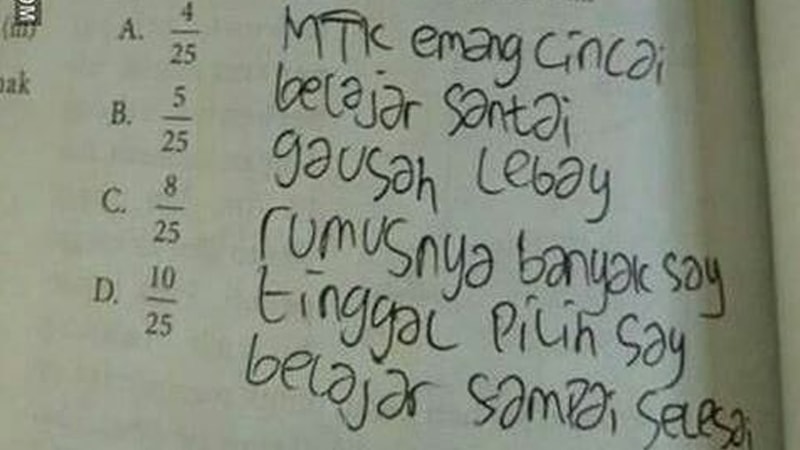 (iii)
A. 4/25
B. 5/25
C. 8/25
D. 10/25
MTK emang cincai
belajar santai
gausah lebay
rumusnya banyak say
tinggal pilih say
belajar sampai selesai